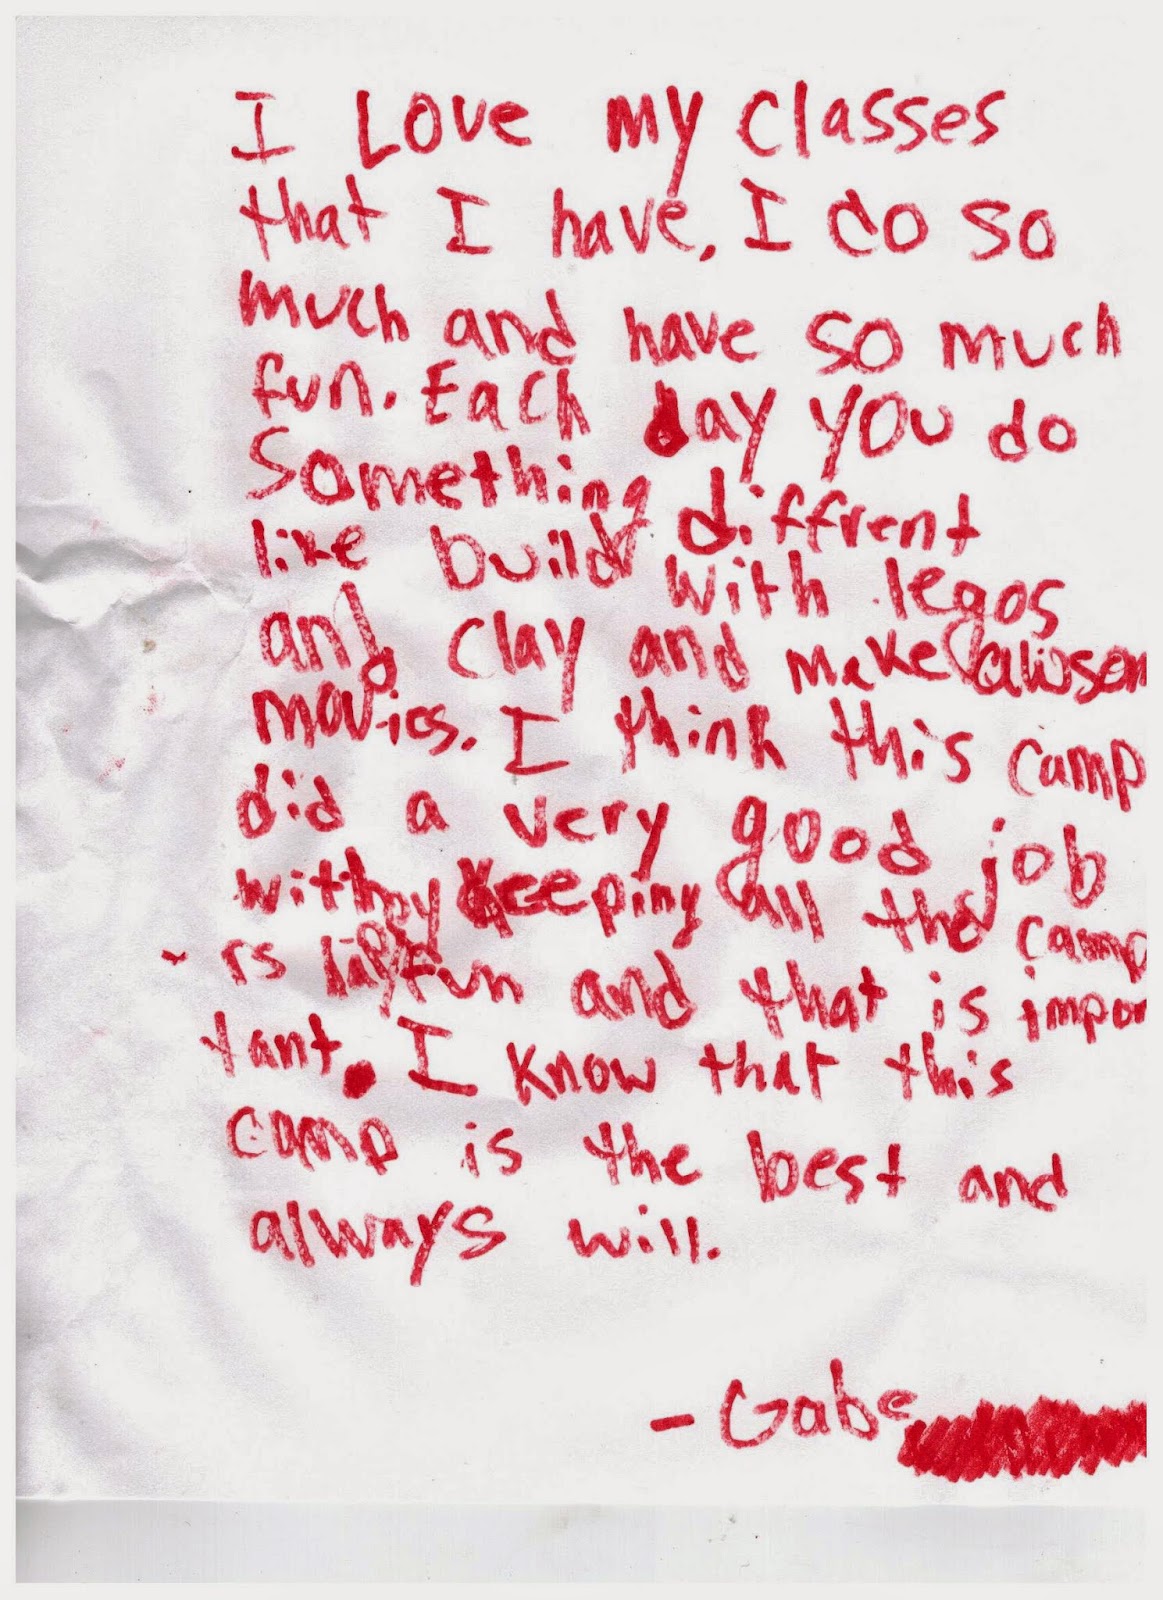 I Love my classes
that I have. I do so
much and have so much
fun. Each day you do
something diffrent
like build with legos
and clay and make awsom
movies. I think this camp
did a very good job
with keeping all the camp
-rs fun and that is impor
tant. I know that this
camp is the best and
always will.
- Gabe